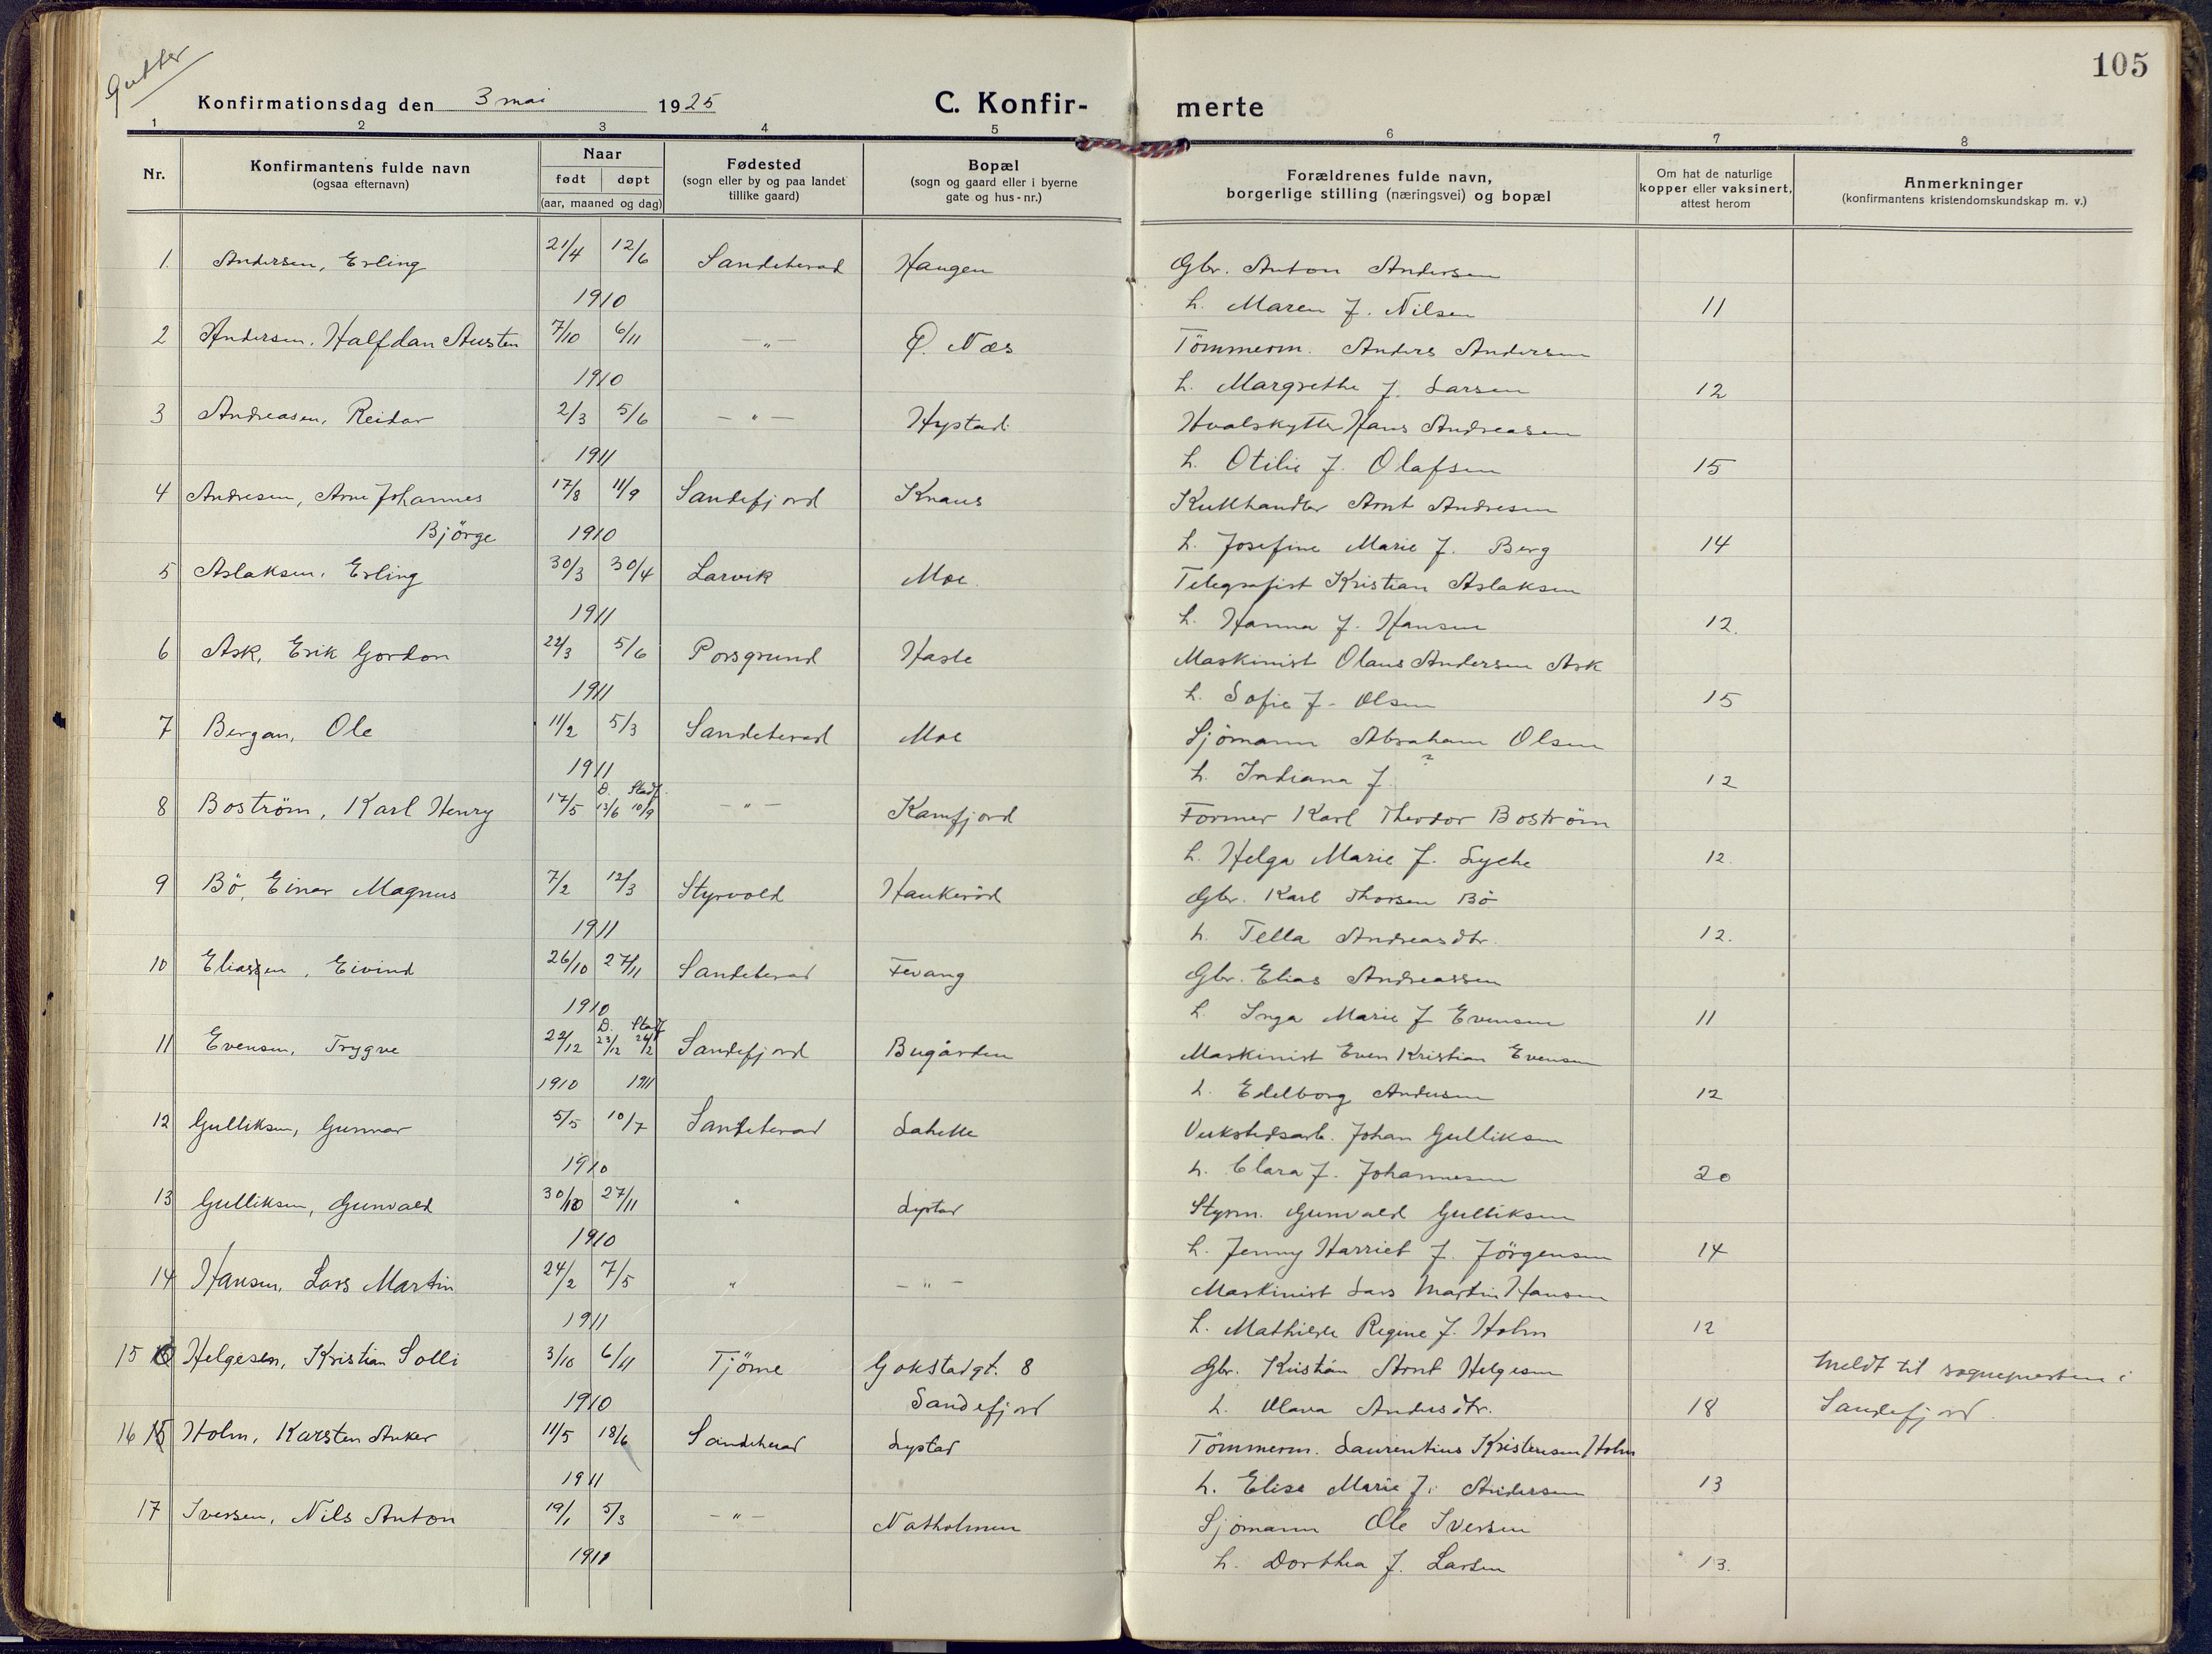 Gutter
105
Konfirmationsdag den 3 mai 1925
C. Konfir-
merte
1 2 3 4 5 6 7 8
Nr.
Konfirmantens fulde navn
(ogsaa efternavn)
Naar
født døpt
(aar, maaned og dag)
Fødested
(sogn eller by og paa landet
tillike gaard)
Bopæl
(sogn og gaard eller i byerne
gate og hus-nr.)
Forældrenes fulde navn,
borgerlige stilling (næringsvei) og bopæl
Om hat de naturlige
kopper eller vaksinert,
attest herom
Anmerkninger
(konfirmantens kristendomskundskap m. v.)
1. Andersen, Erling 21/4 12/6 Sandeherad Haugen Gbr. Anton Andersen
1910 h. Maren f. Nilsen 11
2 Andersen, Halfdan Austen 7/10 6/11 — " — Ø. Næs Tömmerm. Anders Andersen
1910 h. Margrethe f. Larsen 12
3 Andreasen, Reidar 2/3 5/6 — " — Hystad Hvalskytter Hans Andreasen
1911 h. Otilie f. Olafsen 15
4 Andresen, Arne Johannes 17/8 11/9 Sandefjord Knaus Kullhandler Arnt Andresen
Björge 1910 h. Josefine Marie f. Berg 14
5 Aslaksen, Erling 30/3 30/4 Larvik Moe. Telegrafist Kristian Aslaksen
1911 h. Hanna f. Hansen 12.
6 Ask, Erik Gordon 22/3 5/6 Porsgrund Hasle Maskinist Olaus Andersen Ask
1911 h. Sofie f. Olsen 15
7 Bergan, Ole 11/2 5/3 Sandeherad Moe Sjömann Abraham Olsen
1911 h. Indiana f. ? 12
D. Stadf.
8 Boström, Karl Henry 17/5 13/6 10/9 — " — Kamfjord Former Karl Theodor Boström
h. Helga Marie f. Lyche 12.
9 Bö, Einar Magnus 7/2 12/3 Styrvold Haukeröd Gbr. Karl Thorsen Bö
1911 h. Tella Andreasdtr. 12.
10 Eliassen, Eivind 26/10 27/11 Sandeherad Fevang Gbr. Elias Andreassen
1910 h. Inga Marie f Evensen 11
D. Stadf
11 Evensen, Trygve 22/12 23/12 26/2 Sandefjord Bugården Maskinist Even Kristian Evensen
1910 1911 h. Edelborg Andersen 12
12 Gulliksen, Gunnar 5/5 10/7 Sandeherad Lahelle Verkstedsarb. Johan Gulliksen
1910 h. Clara f. Johannesen 20
13 Gulliksen, Gunvald 30/10 27/11 " Lystad Styrm. Gunvald Gulliksen
1910 h. Jenny Harriet f. Jörgensen 14
14 Hansen, Lars Martin 24/2 7/5 " — " — Maskinist Lars Martin Hansen
1911 h. Mathilde Regine f. Holm 12
15 Helgesen, Kristian Solli 3/10 6/11 Tjöme Gokstadgt. 8 Gbr. Kristian Arnt Helgesen Meldt til sognepresten i
1910 Sandefjord h. Olava Andersdtr. 18 Sandefjord.
16 15 Holm, Karsten Anker 11/5 18/6 Sandeherad Lystad Tömmerm. Laurentius Kristensen Holm
1911 h. Elise Marie f. Andersen 13
17 Iversen, Nils Anton 19/1 5/3 — " — Natholmen Sjömann Ole Iversen
1911 h. Dorthea f. Larsen 13.